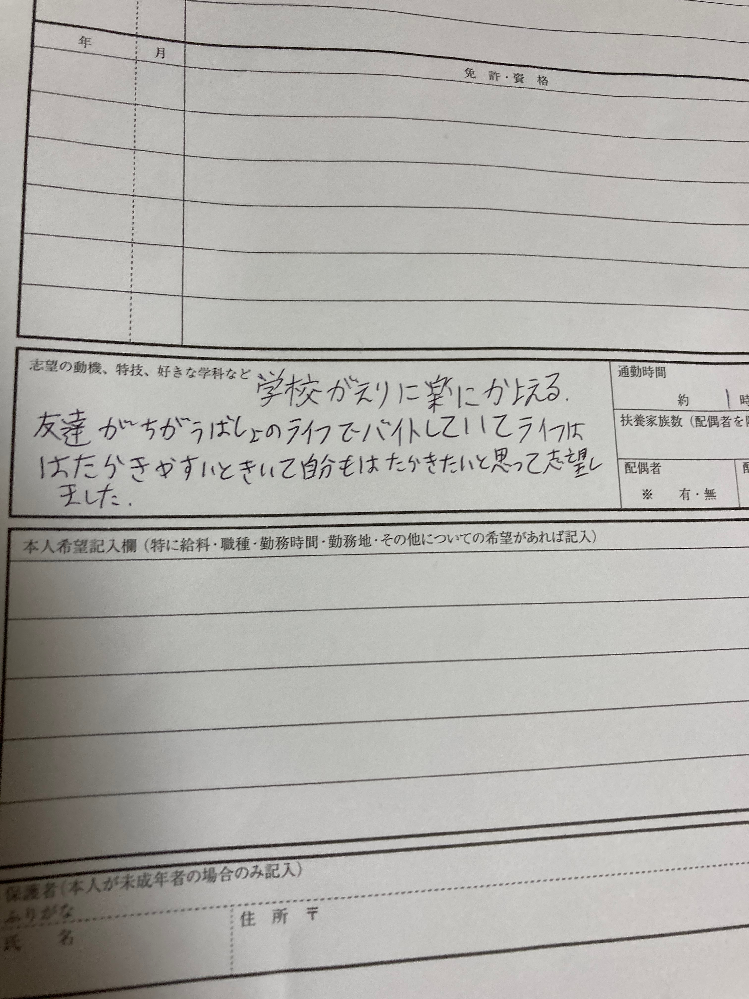 年 月 免許・資格
志望の動機、特技、好きな学科など 学校がえりに楽にかよえる.
友達がちがうばしょのライフでバイトしていてライフは
はたらきやすいときいて自分もはたらきたいと思って志望し
ました.
通勤時間
約 1 時
扶養家族数(配偶者を
配偶者
※ 有・無
本人希望記入欄(特に給料・職種・勤務時間・勤務地・その他についての希望があれば記入)
保護者(本人が未成年者の場合のみ記入)
ふりがな
氏 名
住 所 〒